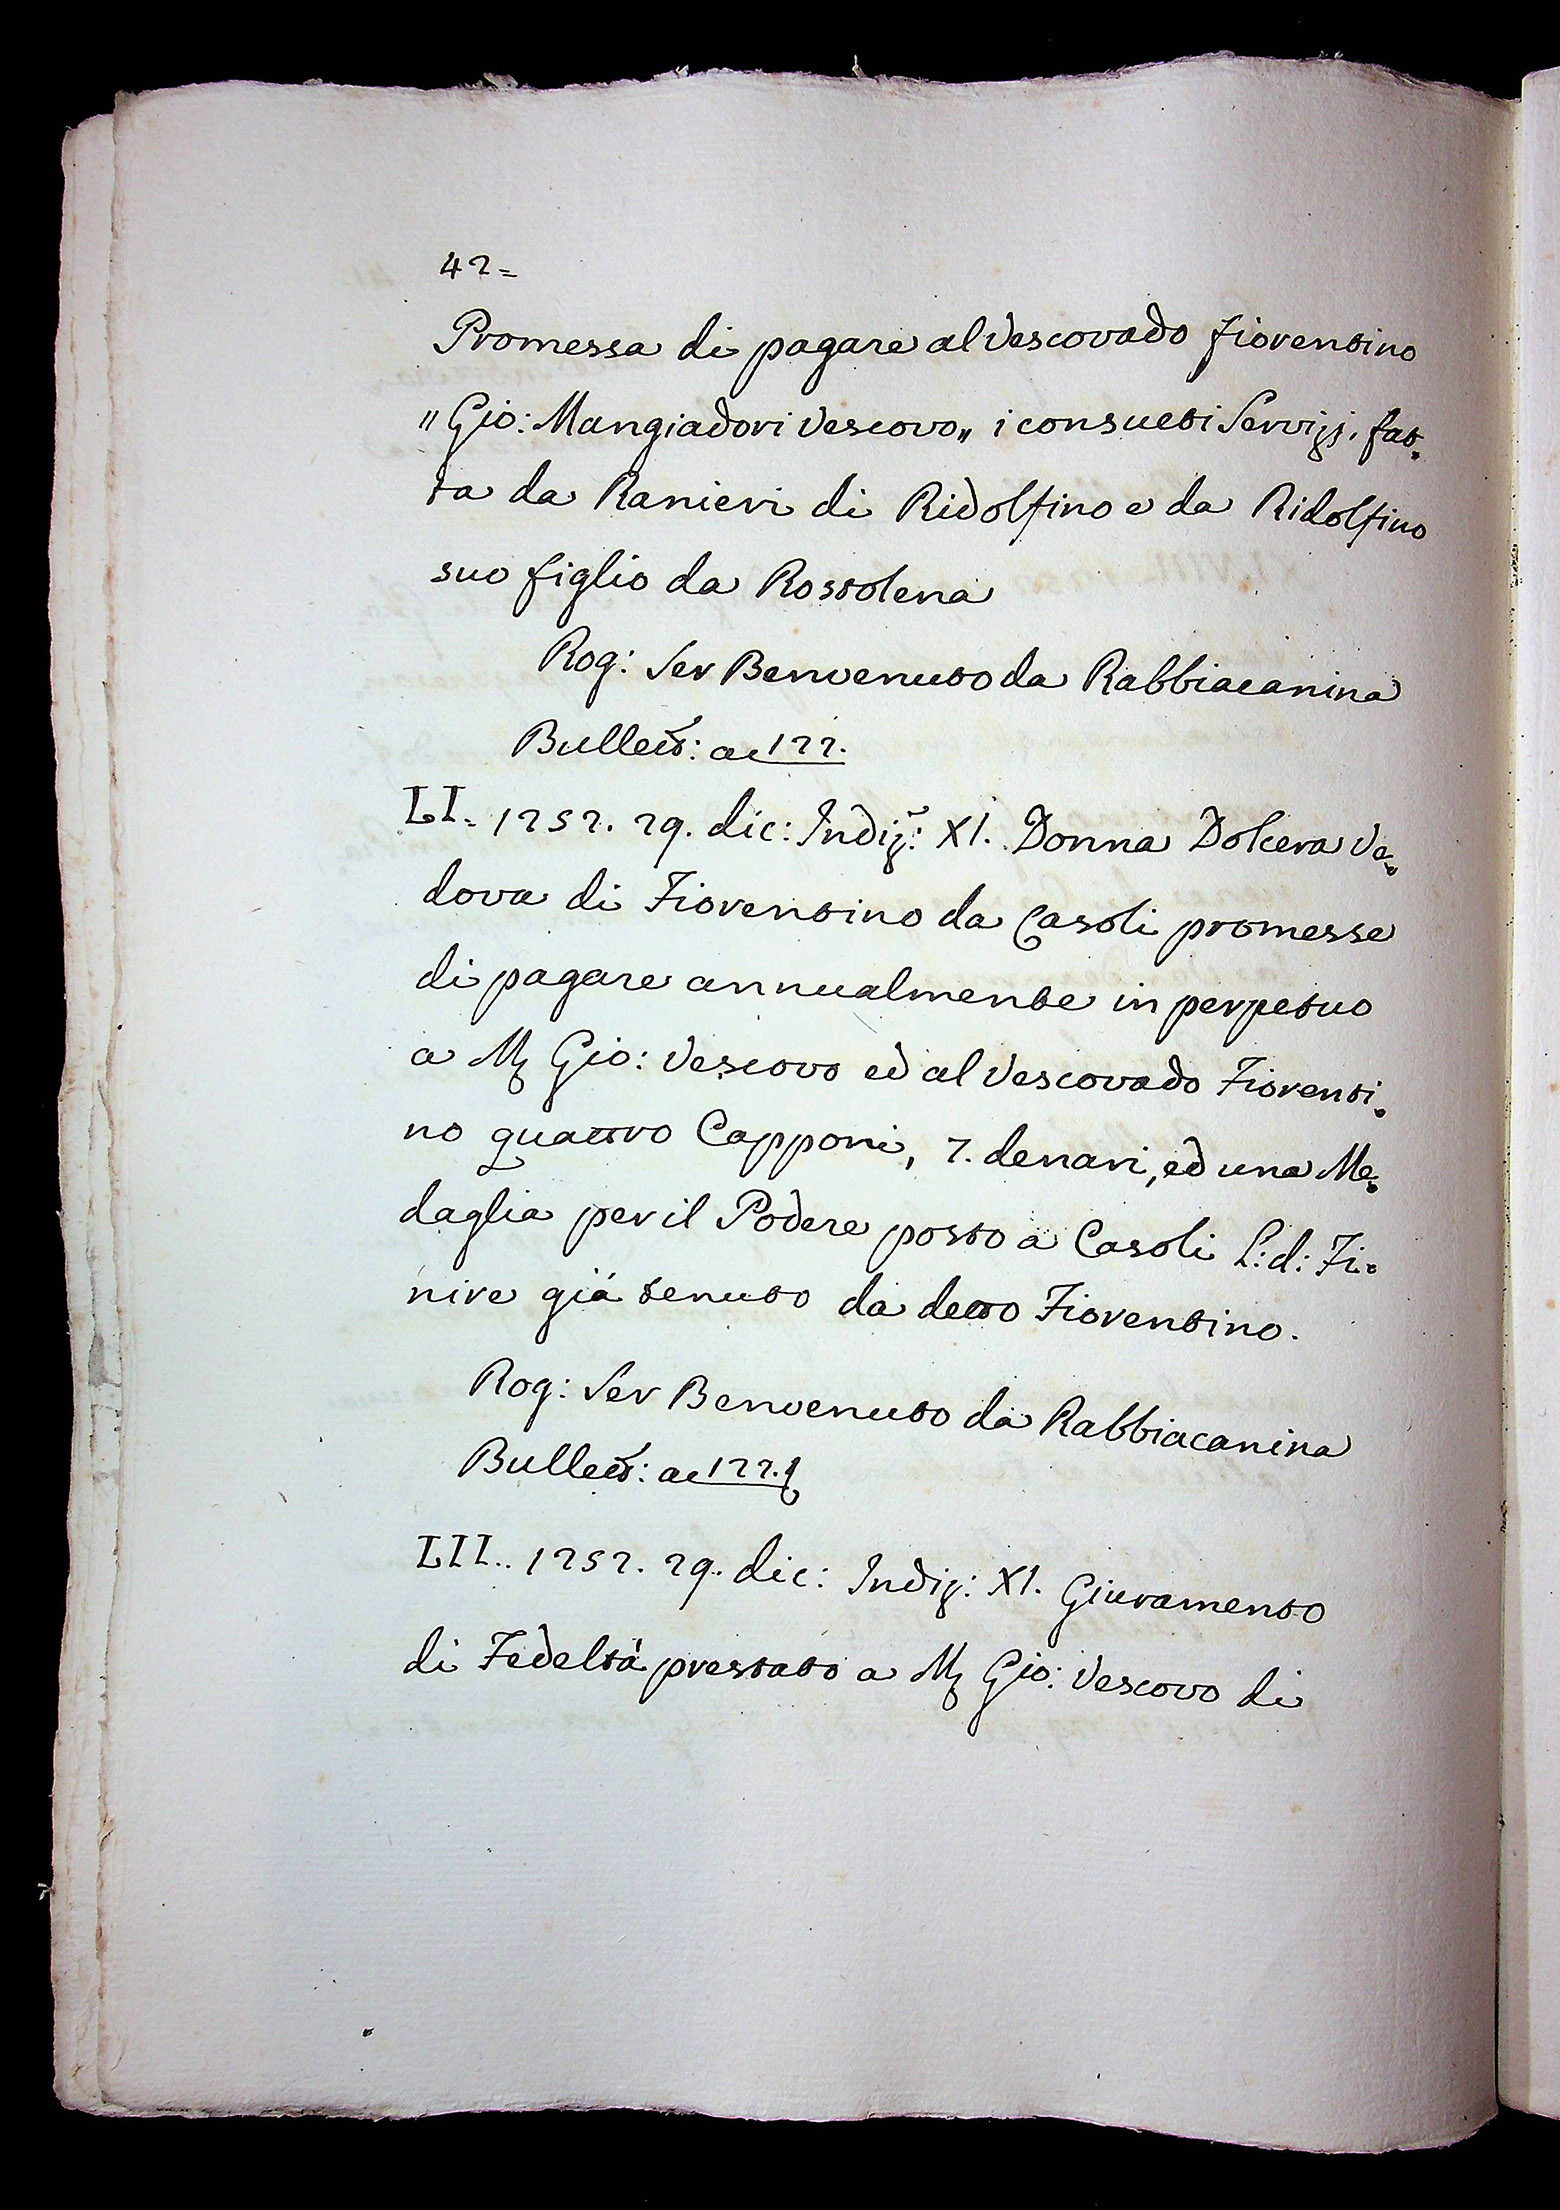 42=
Promessa di pagare al Vescovado fiorentino
"Gio: Mangiadori Vescovo" i consueti Servizj, fat=
ta da Ranieri di Ridolfino e da Ridolfino
suo figlio da Rostolena
Rog: Ser Benvenuto da Rabbiacanina
Bullett: ac 122.
LI. 1252. 29. dic: Indiz: XI. Donna Dolcera Ve=
dova di Fiorentino da Casoli promesse
di pagare annualmente in perpetuo
a M Gio: Vescovo ed al Vescovado Fiorenti=
no quattro Capponi, 7. denari, ed una Me=
daglia per il Podere posto a Casoli L: d: Fi=
nire giá tenuto da detto Fiorentino.
Rog: Ser Benvenuto da Rabbiacanina
Bullett: ac 122.
LII.. 1252. 29. dic: Indiz: XI. Giuramento
di Fedeltá prestato a M Gio: Vescovo di